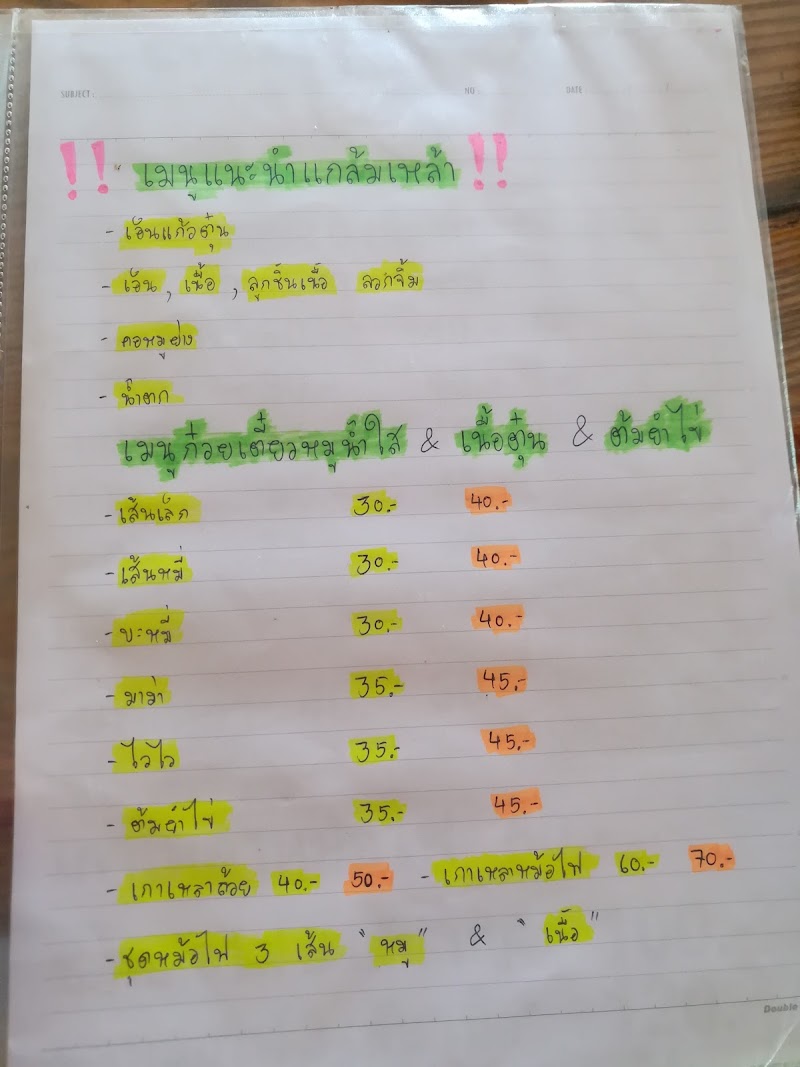 SUBJECT : NO : DATE : / /
!! " เมนูแนะนำแกล้มเหล้า !!
- เอ็นแก้วตุ๋น
- เอ็น , เนื้อ , ลูกชิ้นเนื้อ ลวกจิ้ม
- คอหมูย่าง
- น้ำตก
เมนูก๋วยเตี๋ยวหมูน้ำใส & เนื้อตุ๋น & ต้มยำไข่
- เส้นเล็ก 30.- 40.-
- เส้นหมี่ 30.- 40.-
- บะหมี่ 30.- 40.-
- มาม่า 35.- 45.-
- ไวไว 35.- 45.-
- ต้มยำไข่ 35.- 45.-
- เกาเหลาถ้วย 40.- 50.- - เกาเหลาหม้อไฟ 60.- 70.-
- ชุดหม้อไฟ 3 เส้น " หมู " & " เนื้อ "
Double